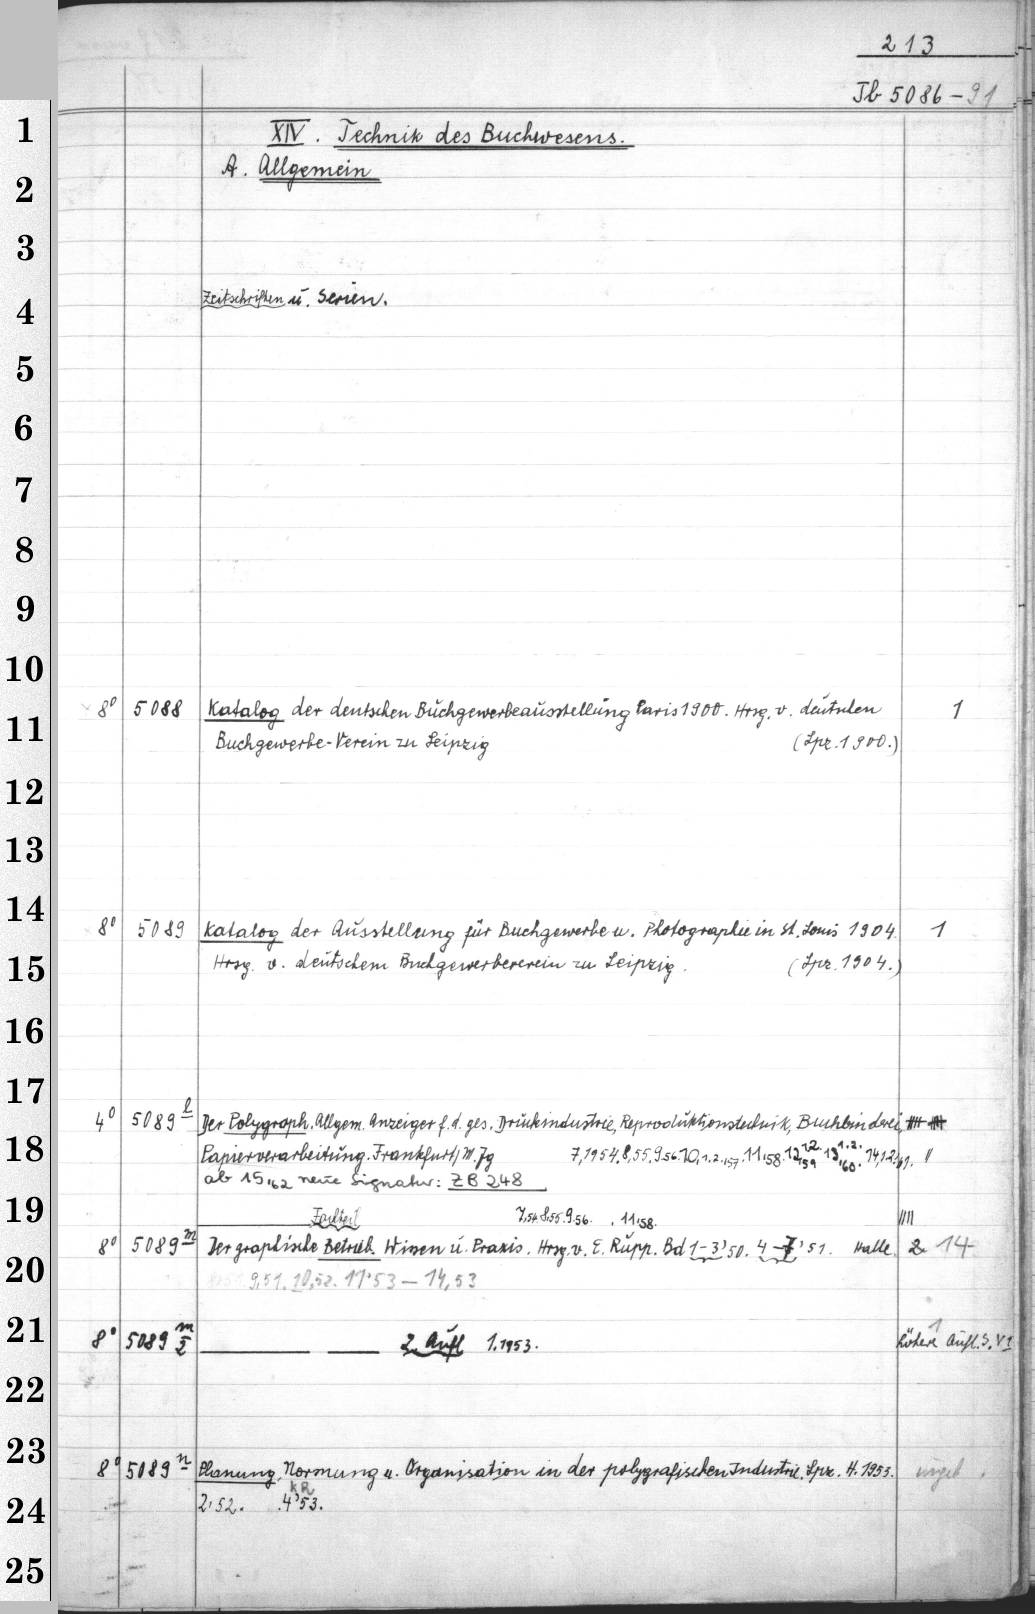 213
Jb 5086-91
1
XIV. Technik des Buchwesens.
A. Allgemein
2
3
Zeitschriften u. Serien.
4
5
6
7
8
9
10
8° 5088 Katalog der deutschen Buchgewerbeausstellung Paris 1900. Hrsg. v. deutschen 1
11
Buchgewerbe-Verein zu Leipzig (Lpz. 1900.)
12
13
14
8° 5089 Katalog der Ausstellung für Buchgewerbe u. Photographie in St. Louis 1904. 1
Hrsg. v. deutschem Buchgewerbeverein zu Leipzig. (Lpz. 1904.)
15
16
17
4° 5089 l Der Polygraph. Allgem. Anzeiger f. d. ges. Druckindustrie, Reproduktionstechnik, Buchbinderei,
18
Papierverarbeitung. Frankfurt/M. Jg 7,1954. 8,55. 9,56. 10,1.2.,57. 11,58. 12,59 13,60. 14,1.2,61.
ab 15,62 neue Signatur: ZB 248
19
7,54. 8,55. 9,56. 11,58.
8° 5089 m Der graphische Betrieb. Wissen u. Praxis. Hrsg. v. E. Rupp. Bd 1-3,50. 4-7,51. Halle 2 14
20
9,51. 10,52. 11,53 — 14,53
21
8° 5089 m/2 2. Aufl 1.1953. höhere Aufl. S. V 1
22
23
8° 5089 n Planung, Normung u. Organisation in der polygrafischen Industrie. Lpz. H. 1953. ungeb.
24
2,52. 4,53.
25